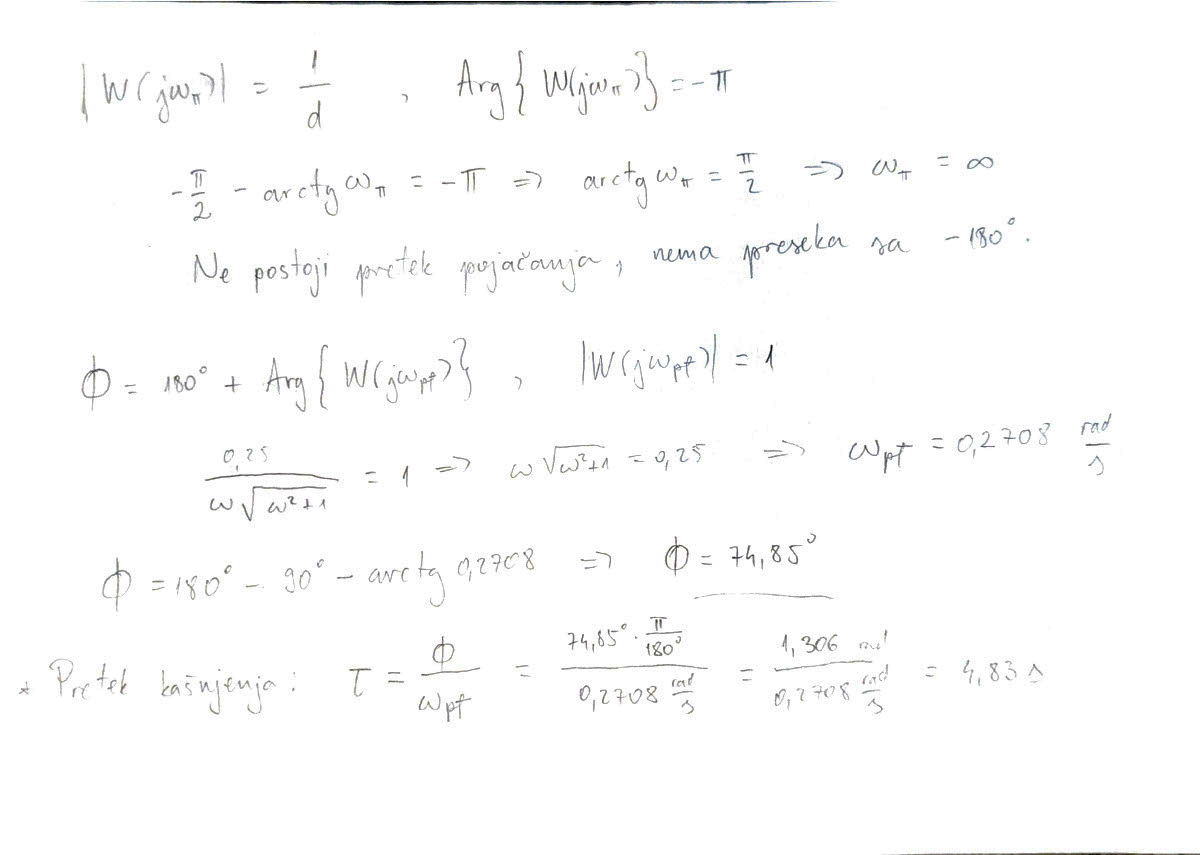 |W(jω_π)| = 1/d , Arg{W(jω_π)} = -π
-π/2 - arctg ω_π = -π => arctg ω_π = π/2 => ω_π = ∞
Ne postoji pretek pojačanja, nema preseka sa -180°.
Φ = 180° + Arg{W(jω_pf)} , |W(jω_pf)| = 1
0,25/(ω√(ω²+1)) = 1 => ω√(ω²+1) = 0,25 => ω_pf = 0,2708 rad/s
Φ = 180° - 90° - arctg 0,2708 => Φ = 74,85°
* Pretek kašnjenja: τ = Φ/ω_pf = (74,85° · π/180°)/(0,2708 rad/s) = (1,306 rad)/(0,2708 rad/s) = 4,83 s